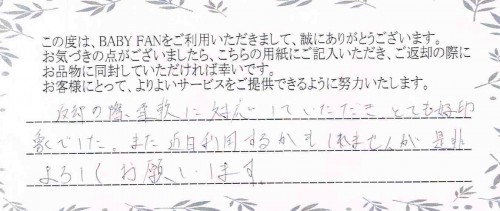 この度は、BABY FANをご利用いただきまして、誠にありがとうございます。
お気づきの点がございましたら、こちらの用紙にご記入いただき、ご返却の際に
お品物に同封していただければ幸いです。
お客様にとって、よりよいサービスをご提供できるように努力いたします。
返却の際、柔軟に対応していただき とても好印
象でした。また近日利用するかもしれませんが 是非
よろしくお願いします